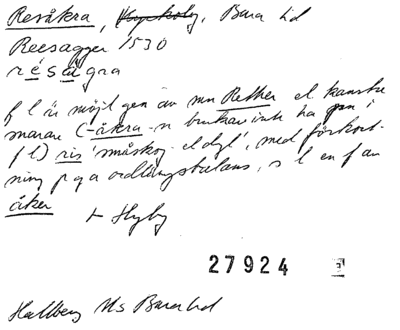 Resåkra, Bara hd
Reesagger 1530
résågra
f l är möjl gen av mn Rether el kanske
snarare (-åkra-n brukar inte ha pn i
f l) ris 'småskog el dyl', med förkort-
ning p g a ordlängdsbalans, s l en f av
åker
+ Hyby
27924
Hallberg Ms Bara hd